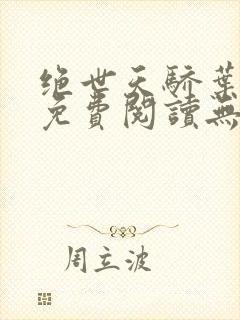 绝世天骄葉
免費閱讀無
周立波